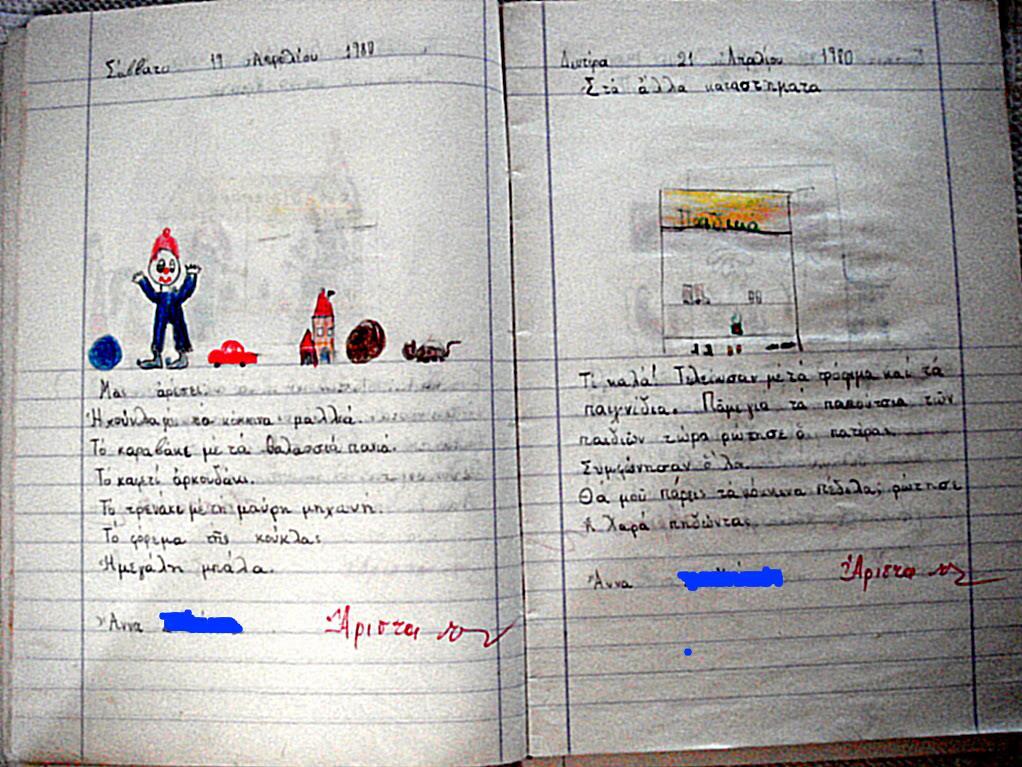 Σάββατο 19 Ἀπριλίου 1980
Μας ἀρέσει.
Ἡ κούκλα μέ τα κόκκινα μαλλιά.
Τό καραβάκι μέ τά θαλασσιά πανιά.
Το καφετί ἀρκουδάκι.
Το τρενάκι μέ τή μαύρη μηχανή.
Το φόρεμα τῆς κούκλας
Ἡ μεγάλη μπάλα.
Ἄννα
Ἄριστα
Δευτέρα 21 Ἀπριλίου 1980
Στά ἄλλα καταστήματα
Παιδικά
Τί καλά! Τελείωσαν μέ τά φόρεμα καί τά
παιχνίδια. Πᾶμε για τά παπούτσια τῶν
παιδιῶν τώρα ρώτησε ὁ πατέρας
Συμφώνησαν ὅλα.
Θά μοῦ πάρεις τά κόκκινα πέδιλα; ρώτησε
ἡ Χαρά πηδώντας
Ἄννα
Ἄριστα